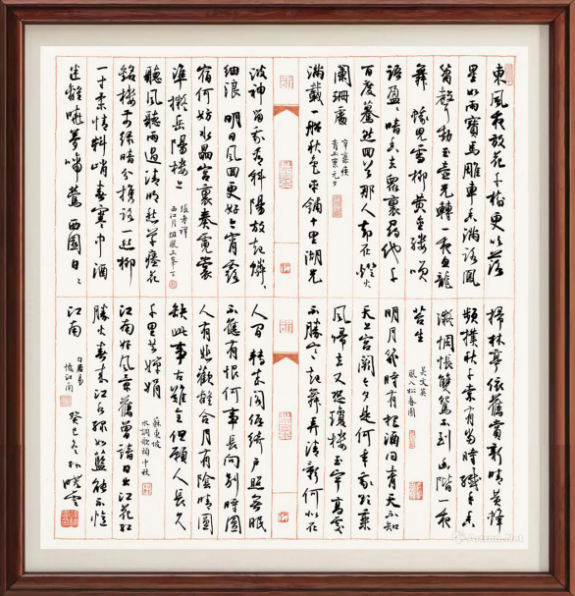 東風夜放花千樹更吹落
星如雨寶馬雕車香滿路鳳
簫聲動玉壺光轉一夜魚龍
舞蛾兒雪柳黃金縷笑
語盈盈暗香去眾裏尋他千
百度驀然回首那人卻在燈火
闌珊處
辛棄疾
青玉案元夕
滿載一船秋色平鋪十里湖光
波神留我看斜陽放起鱗鱗
細浪明日風回更好今宵露
宿何妨水晶宮裏奏霓裳
準擬岳陽樓上
張孝祥
西江月阻風三峯下
聽風聽雨過清明愁草瘞花
銘樓前綠暗分攜路一絲柳
一寸柔情料峭春寒中酒
迷離曉夢啼鶯西園日日
掃林亭依舊賞新晴黃蜂
頻撲秋千索有當時纖手香
凝惆悵雙鴛不到幽階一夜
苔生
吳文英
風入松春園
明月幾時有把酒問青天不知
天上宮闕今夕是何年我欲乘
風歸去又恐瓊樓玉宇高處
不勝寒起舞弄清影何似在
人間轉朱閣低綺戶照無眠
不應有恨何事長向別時圓
人有悲歡離合月有陰晴圓
缺此事古難全但願人長久
千里共嬋娟
蘇東坡
水調歌頭中秋
江南好風景舊曾諳日出江花紅
勝火春來江水綠如藍能不憶
江南
白居易
憶江南
癸巳冬